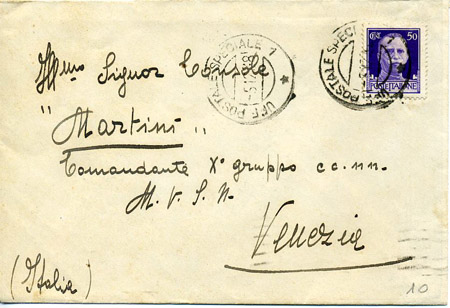 UFF. POSTALE SPECIALE 1
UFF. POSTALE SPECIALE 1
Cent. 50
POSTE ITALIANE
Ill.mo Signor Console
"Martini"
Comandante X° gruppo cc. nn.
M. V. S. N.
Venezia
(Italia)
10